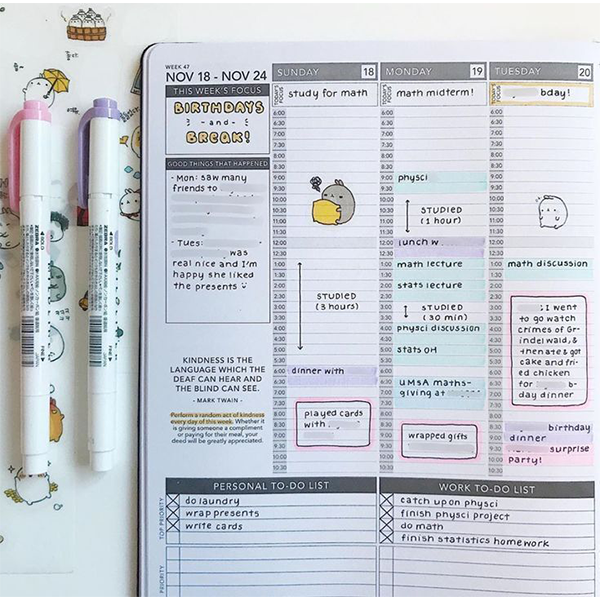 WEEK 47
NOV 18 - NOV 24
THIS WEEK'S FOCUS
BIRTHDAYS
- and -
BREAK!
GOOD THINGS THAT HAPPENED
- Mon: saw many
friends to
- Tues:
was
real nice and I'm
happy she liked
the presents
KINDNESS IS THE
LANGUAGE WHICH THE
DEAF CAN HEAR AND
THE BLIND CAN SEE.
- MARK TWAIN -
Perform a random act of kindness
every day of this week. Whether it
is giving someone a compliment
or paying for their meal, your
deed will be greatly appreciated.
SUNDAY 18
TODAY'S FOCUS
study for math
STUDIED
(3 hours)
dinner with
played cards
with
MONDAY 19
TODAY'S FOCUS
math midterm!
physci
STUDIED
(1 hour)
lunch w
math lecture
stats lecture
STUDIED
(30 min)
physci discussion
stats OH
UMSA maths-
giving at
wrapped gifts
TUESDAY 20
TODAY'S FOCUS
bday!
math discussion
: I went
to go watch
crimes of Gr-
indelwald, &
then ate & got
cake and fri-
ed chicken
for b-
day dinner
birthday
dinner
surprise
party!
PERSONAL TO-DO LIST
TOP PRIORITY
do laundry
wrap presents
write cards
PRIORITY
WORK TO-DO LIST
catch up on physci
finish physci project
do math
finish statistics homework